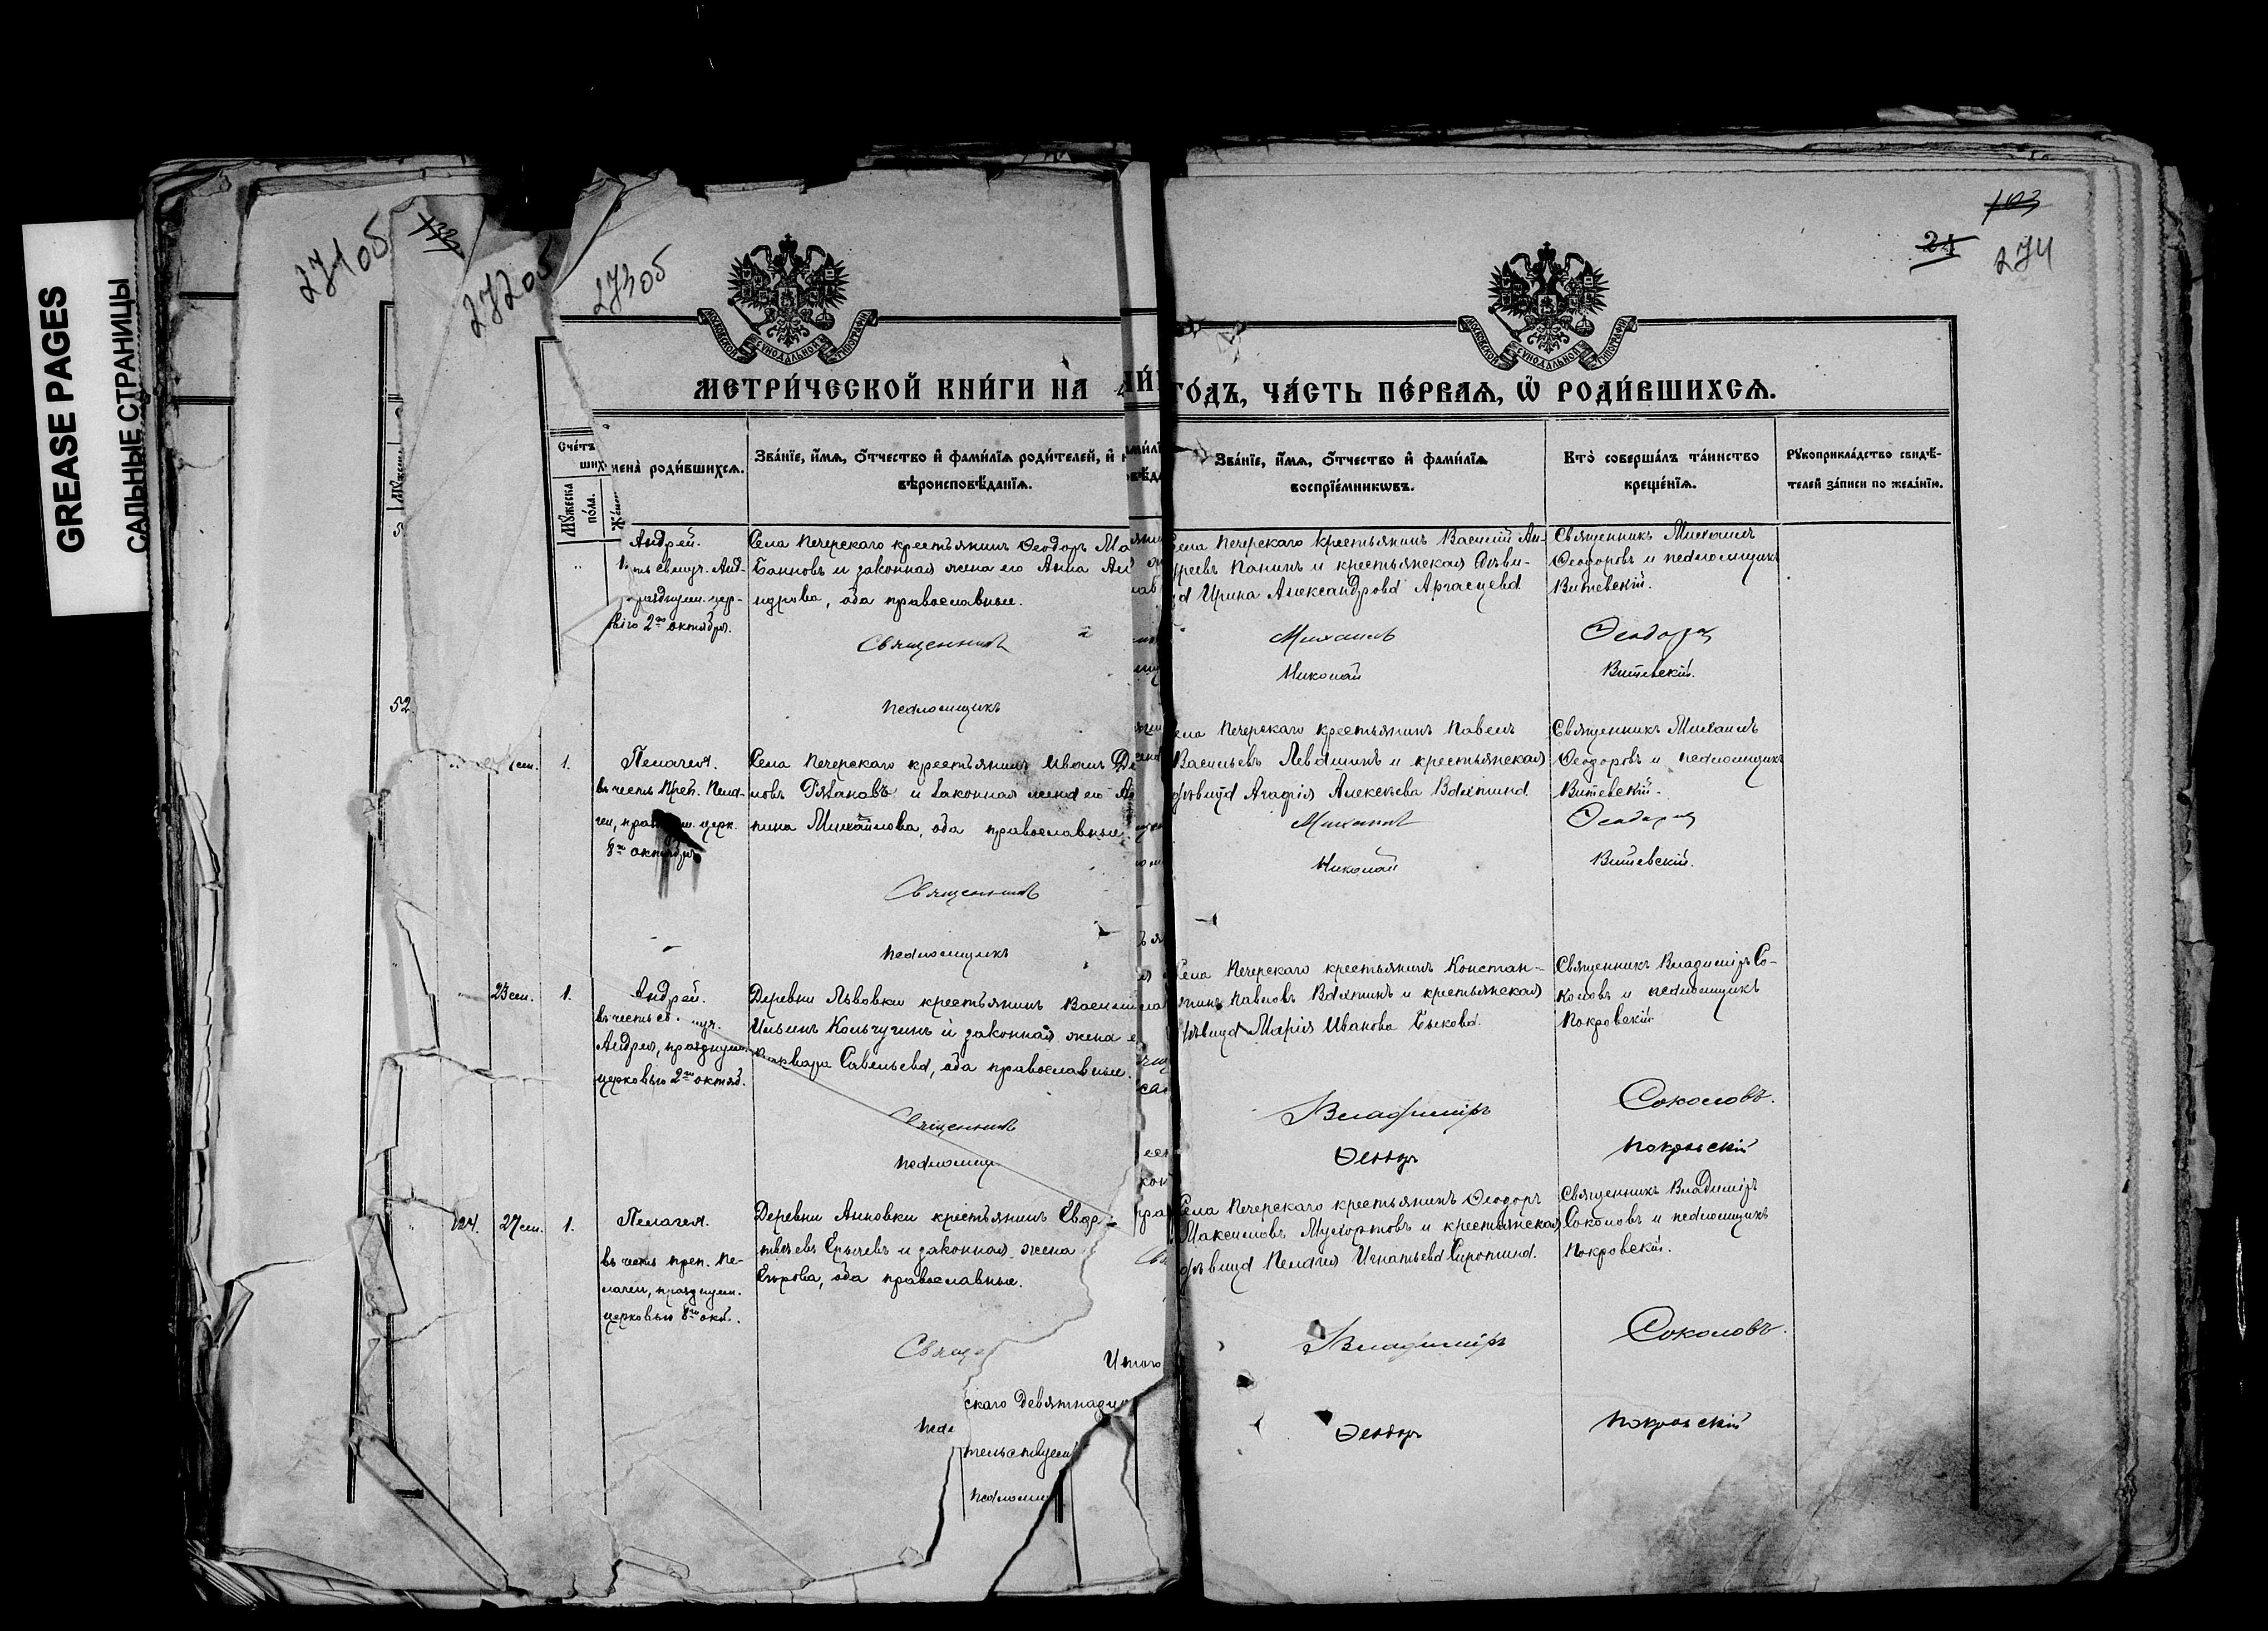 GREASE PAGES
САЛЬНЫЕ СТРАНИЦЫ
271об
272об
273об
103
24
274
МОСКОВСКОЙ СѴНОДАЛЬНОЙ ТИПОГРАФІИ
МОСКОВСКОЙ СѴНОДАЛЬНОЙ ТИПОГРАФІИ
МЕТРИ́ЧЕСКОЙ КНИ́ГИ НА
ГО́ДЪ, ЧА́СТЬ ПЕ́РВАѦ, Ѿ РОДИ́ВШИХСѦ.
Сче́тъ
ших
Мꙋжеска по́ла.
мена̀ роди́вшихсѧ.
Зва́нїе, и́мѧ, ѻ́тчество и҆ фами́лїѧ роди́телей, и҆
вѣроисповѣ́данїѧ.
Зва́нїе, и́мѧ, ѻ́тчество и҆ фами́лїѧ
воспрїе́мникѡвъ.
Кто̀ соверша́лъ та́инство
креще́нїѧ.
Рꙋкоприкла́дство свидѣ́-
телей за́писи по жела́нїю.
Андрей.
Анд-
празднуем. цер-
2го октября.
Села Печерскаго крестьянинъ Ѳеодоръ Ма
Баиновъ и законная жена его Анна Ал
ндрова, оба православные.
Священникъ
Псаломщикъ
Села Печерскаго крестьянинъ Василій Ан-
дреевъ Панинъ и крестьянская дѣви-
ца Ирина Александрова Аргасцева.
Михаилъ
Николай
Священникъ Михаилъ
Ѳеодоровъ и псаломщикъ
Витевскій.
Ѳеодоровъ
Витевскій.
52.
сен. 1.
Пелагея.
въ честь Преп. Пела-
геи, церк.
8го октября
Села Печерскаго крестьянинъ Иванъ
новъ Рязановъ и законная жена его
пина Михайлова, оба православные.
Священникъ
Псаломщикъ
Села Печерскаго крестьянинъ Павелъ
Васильевъ Левашинъ и крестьянская
дѣвица Агафія Алексѣева Вахтина.
Михаилъ
Николай
Священникъ Михаилъ
Ѳеодоровъ и псаломщикъ
Витевскій.
Ѳеодоровъ
Витевскій.
23 сен. 1.
Андрей.
въ честь св.
Андрея, празднуем.
церковью 2го октяб.
Деревни Львовки крестьянинъ Васил
Ильинъ Кольчугинъ и законная жена е
Савельева, оба православные.
Священникъ
Псаломщ
Села Печерскаго крестьянинъ Констан-
тинъ Павловъ Вахтинъ и крестьянская
дѣвица Марія Иванова Быкова.
Владиміръ
Ѳеодоръ
Священникъ Владиміръ Со-
коловъ и псаломщикъ
Покровскій.
Соколовъ.
Покровскій
24. 27 сен. 1.
Пелагея.
въ честь преп. Пе-
лагеи, празднуем.
церковью 8го окт.
Деревни Анновки крестьянинъ Евдо-
и законная жена
Егорова, оба православные.
Свяще
Псал
Села Печерскаго крестьянинъ Ѳеодоръ
Максимовъ Мухортовъ и крестьянская
дѣвица Пелагея Игнатьева Сиротина.
Владиміръ
Ѳеодоръ
Священникъ Владиміръ
Соколовъ и псаломщикъ
Покровскій.
Соколовъ.
Покровскій
Итого
скаго Девятнадца
тельствуем
Псаломщ